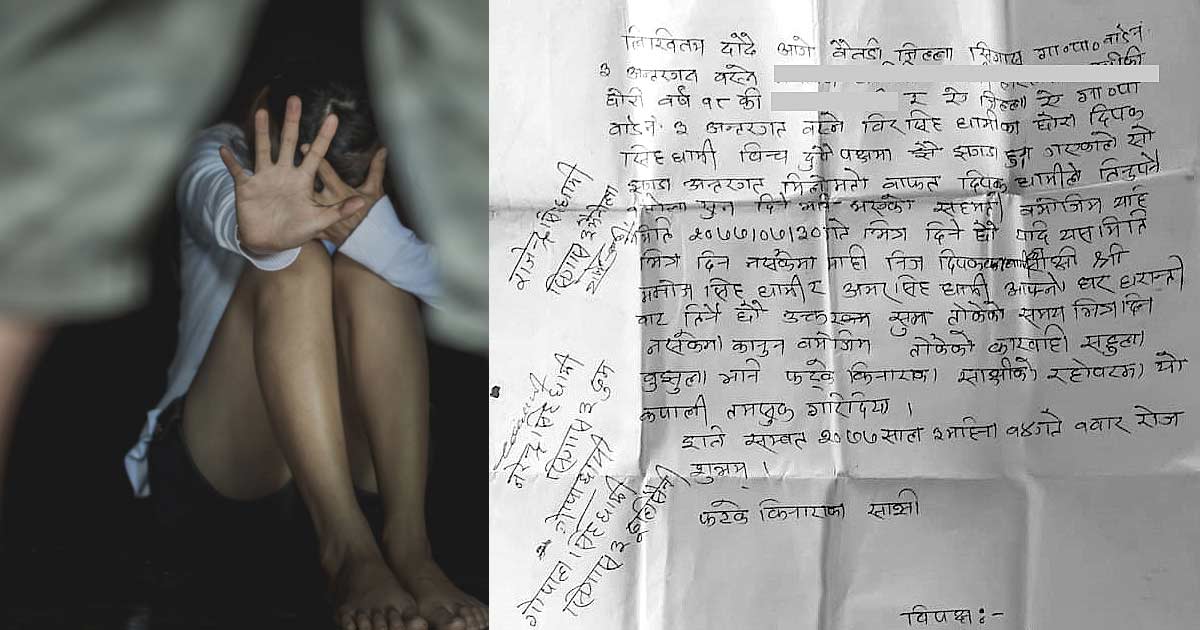 लिखितम दादै आगे बैतडी जिल्ला सिगास गा०पा० वार्डनं
३ अन्तरगत बस्ने
छोरी वर्ष १८ की र ऐ जिल्ला ऐ गा०पा
वार्डनं ३ अन्तरगत बस्ने विरसिंह धामीका छोरा दिपक
सिंह धामी विच दुवै पक्षमा झगडा गरेकोले सो
झगडा अन्तरगत मिलोमतो वाफत दिपक धामीले
तोला सुन दिने भनि भएको सहमती बमोजिम यहि
मिति २०७७।०७।३० गते भित्र दिने छौ यदि यस मिति
भित्र दिन नसकेमा माही निज श्री
मनोज सिंह धामी र अमर सिंह धामी आफ्नो घर घरान्
बाट तिर्ने छौ उक्त रकम सुन तोकेको समय भित्र दिन
नसकेमा कानुन बमोजिम तोकेको कारवाही सहुला
बुझुला भनि फट्के किनाराका साक्षीको रहोवरमा यो
कपाली तमसुक गरिदिया ।
इति सम्वत २०७७ साल ३ महिना १४ गते १ वार रोज
शुभम् ।
फट्के किनाराका साक्षी
विपक्ष :-
गजेन्द्र सिंह धामी
सिगास ३
नरेन्द्र सिंह धामी
सिगास ३
गोपाल सिंह धामी
सिगास ३